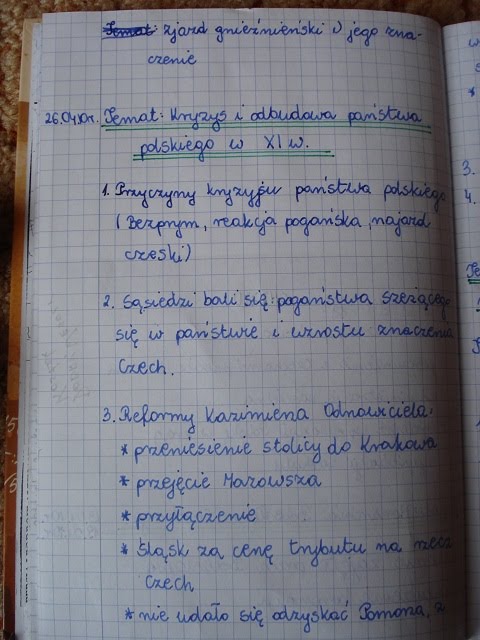 Temat: zjazd gnieźnieński i jego zna-
czenie
26.04.10r. Temat: Kryzys i odbudowa państwa
polskiego w XI w.
1. Przyczyny kryzysu państwa polskiego
(Bezprym, reakcja pogańska, najazd
czeski)
2. Sąsiedzi bali się: pogaństwa szerzącego
się w państwie i wzrostu znaczenia
Czech.
3. Reformy Kazimierza Odnowiciela:
* przeniesienie stolicy do Krakowa
* przejęcie Mazowsza
* przyłączenie
* Śląsk za cenę trybutu na rzecz
Czech
* nie udało się odzyskać Pomorza, z
3.
4.